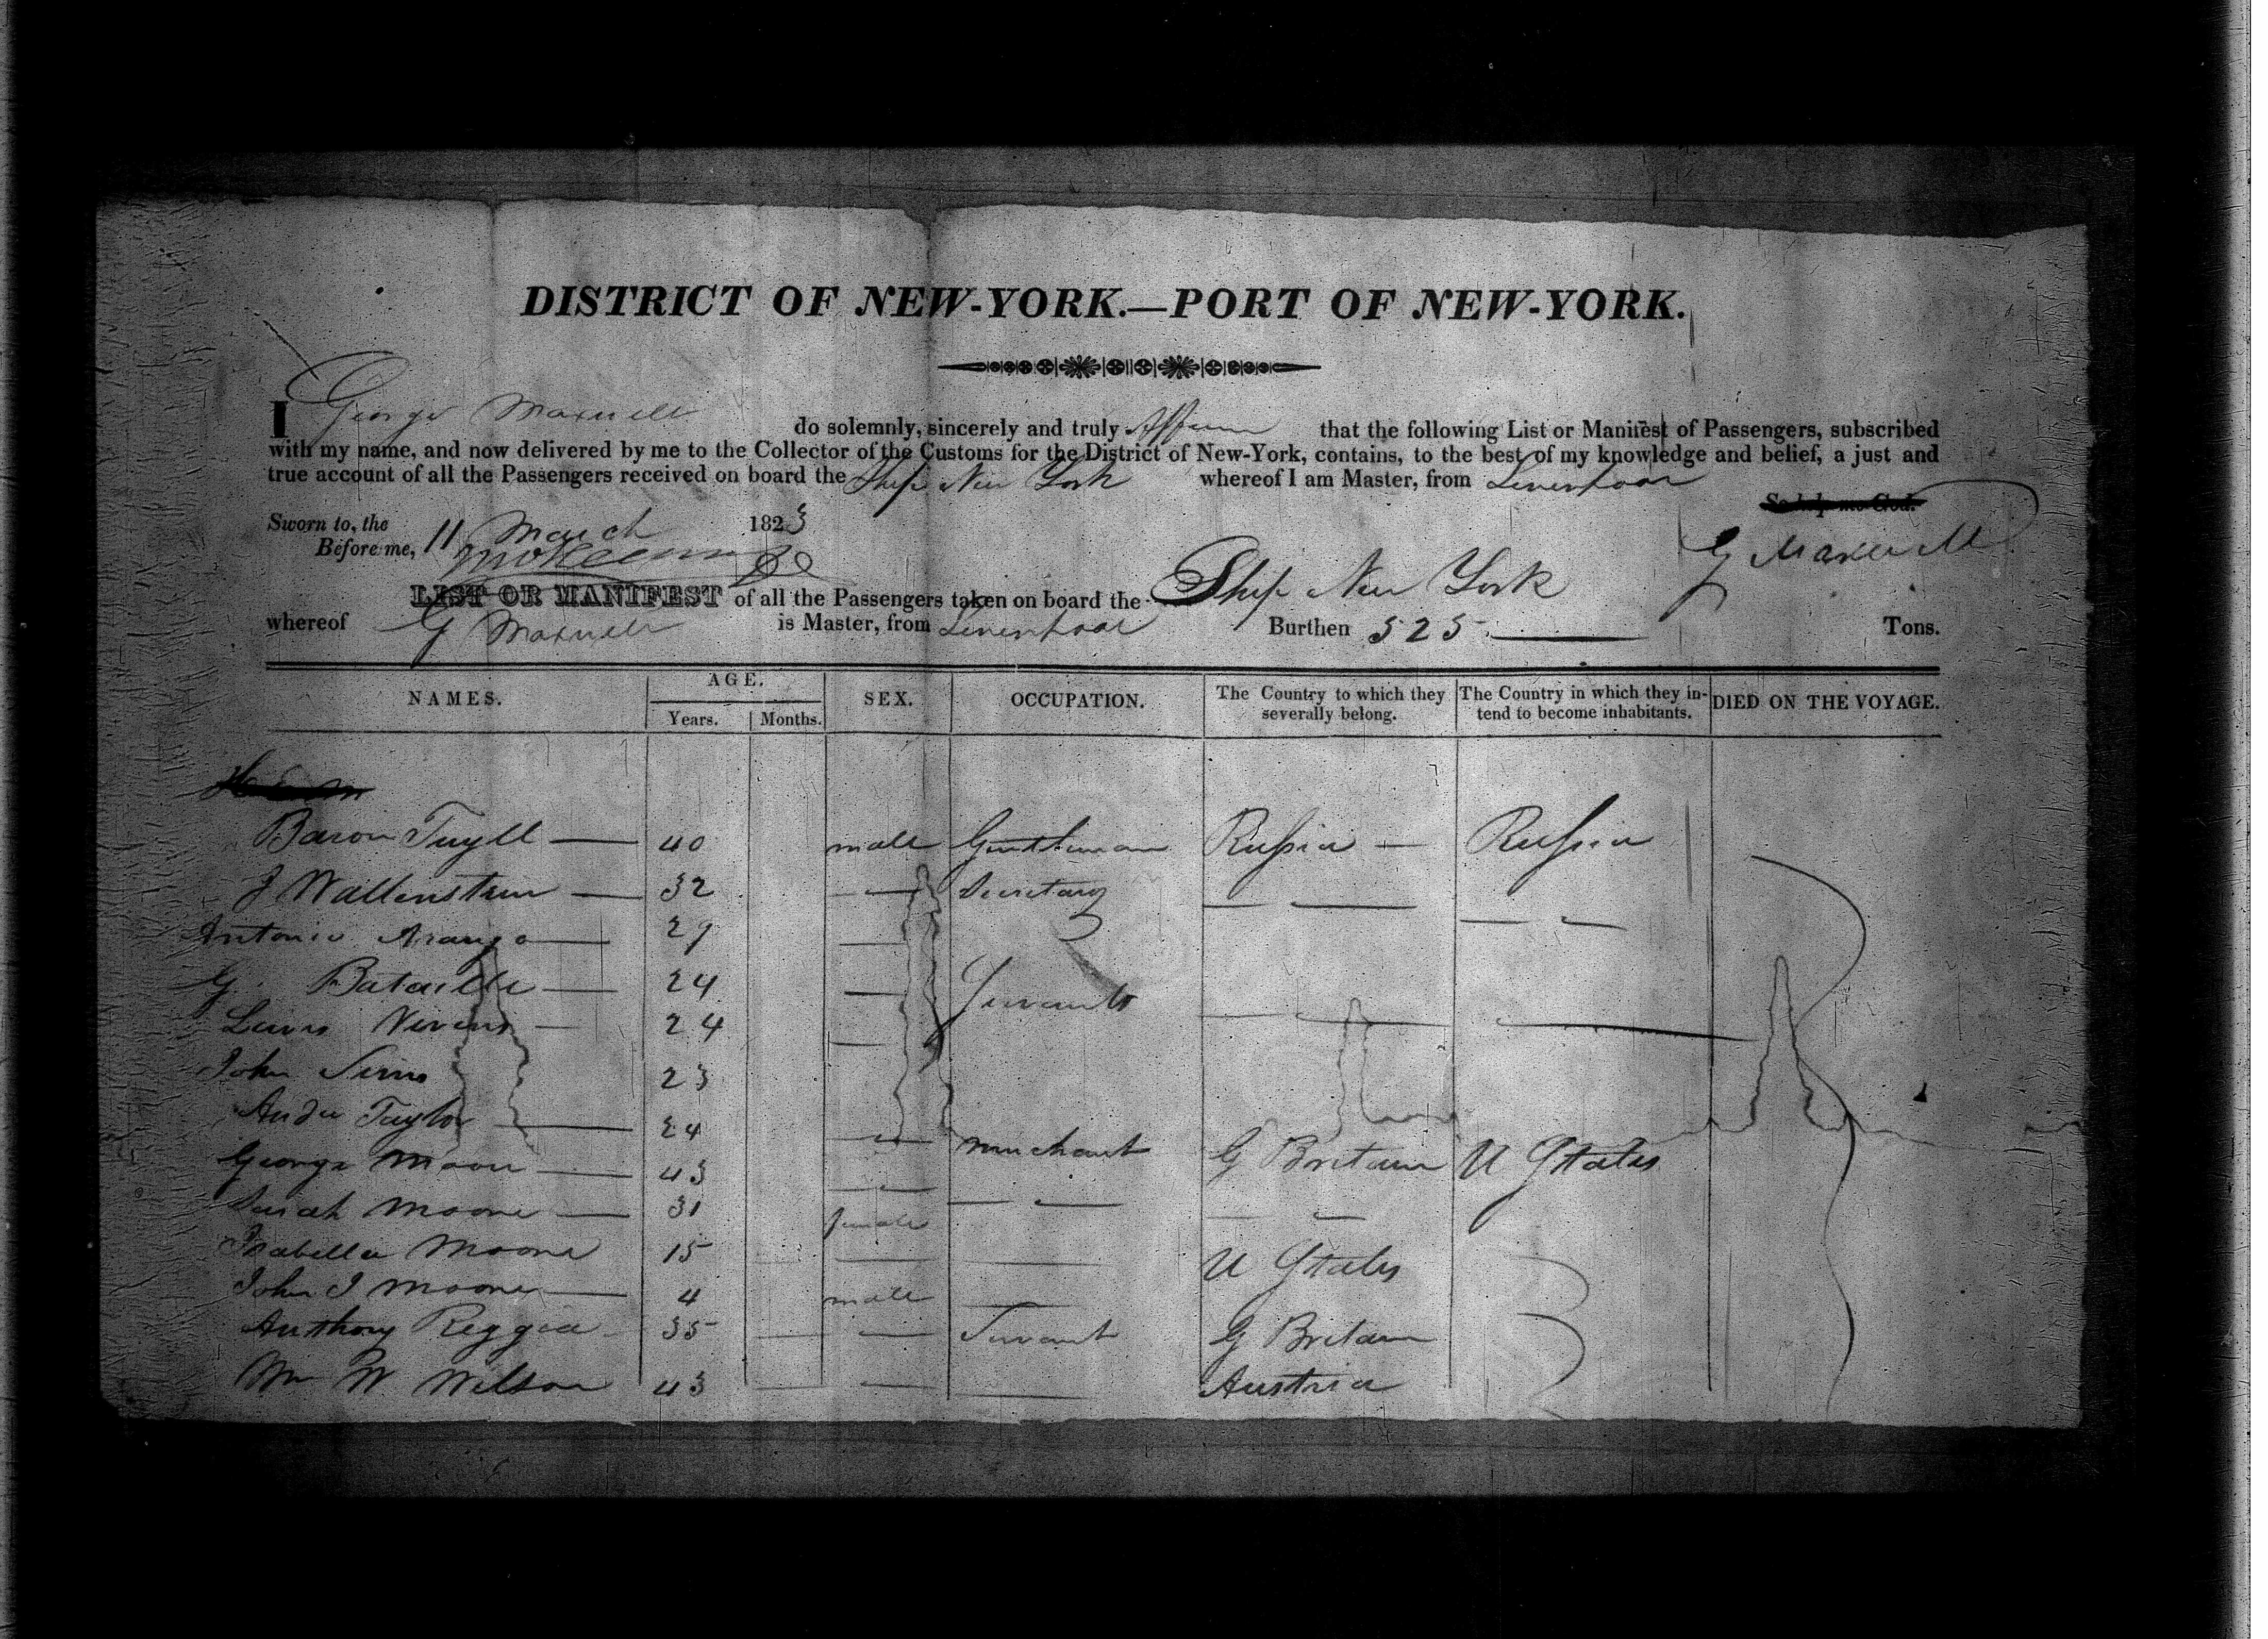 DISTRICT OF NEW-YORK.—PORT OF NEW-YORK.
I George Maxwell do solemnly, sincerely and truly Affirm that the following List or Manifest of Passengers, subscribed
with my name, and now delivered by me to the Collector of the Customs for the District of New-York, contains, to the best of my knowledge and belief, a just and
true account of all the Passengers received on board the Ship New York whereof I am Master, from Liverpool
So help me God.
Sworn to, the 11 March 1823
Before me,
G Maxwell
LIST OR MANIFEST of all the Passengers taken on board the Ship New York
whereof G Maxwell is Master, from Liverpool Burthen 525 Tons.
NAMES. AGE. SEX. OCCUPATION. The Country to which they severally belong. The Country in which they intend to become inhabitants. DIED ON THE VOYAGE.
Years. Months.
Baron Tuyll — 40 male Gentleman Russia — Russia
J Wallenstein — 32 — Secretary — —
Antonio Arango — 29 —
G. Bataille — 24 — Servants
Lewis Vivens — 24 — — —
John Sims 23
Andw Taylor — 24 — merchant G Britain U States
George Moore — 43 — — —
Sarah Moore — 31 female — —
Isabella Moore 15 — — U States
John J Moore — 4 male —
Anthony Reggia 35 — — Servant G Britain
Mr W Wilson 43 — — — Austria